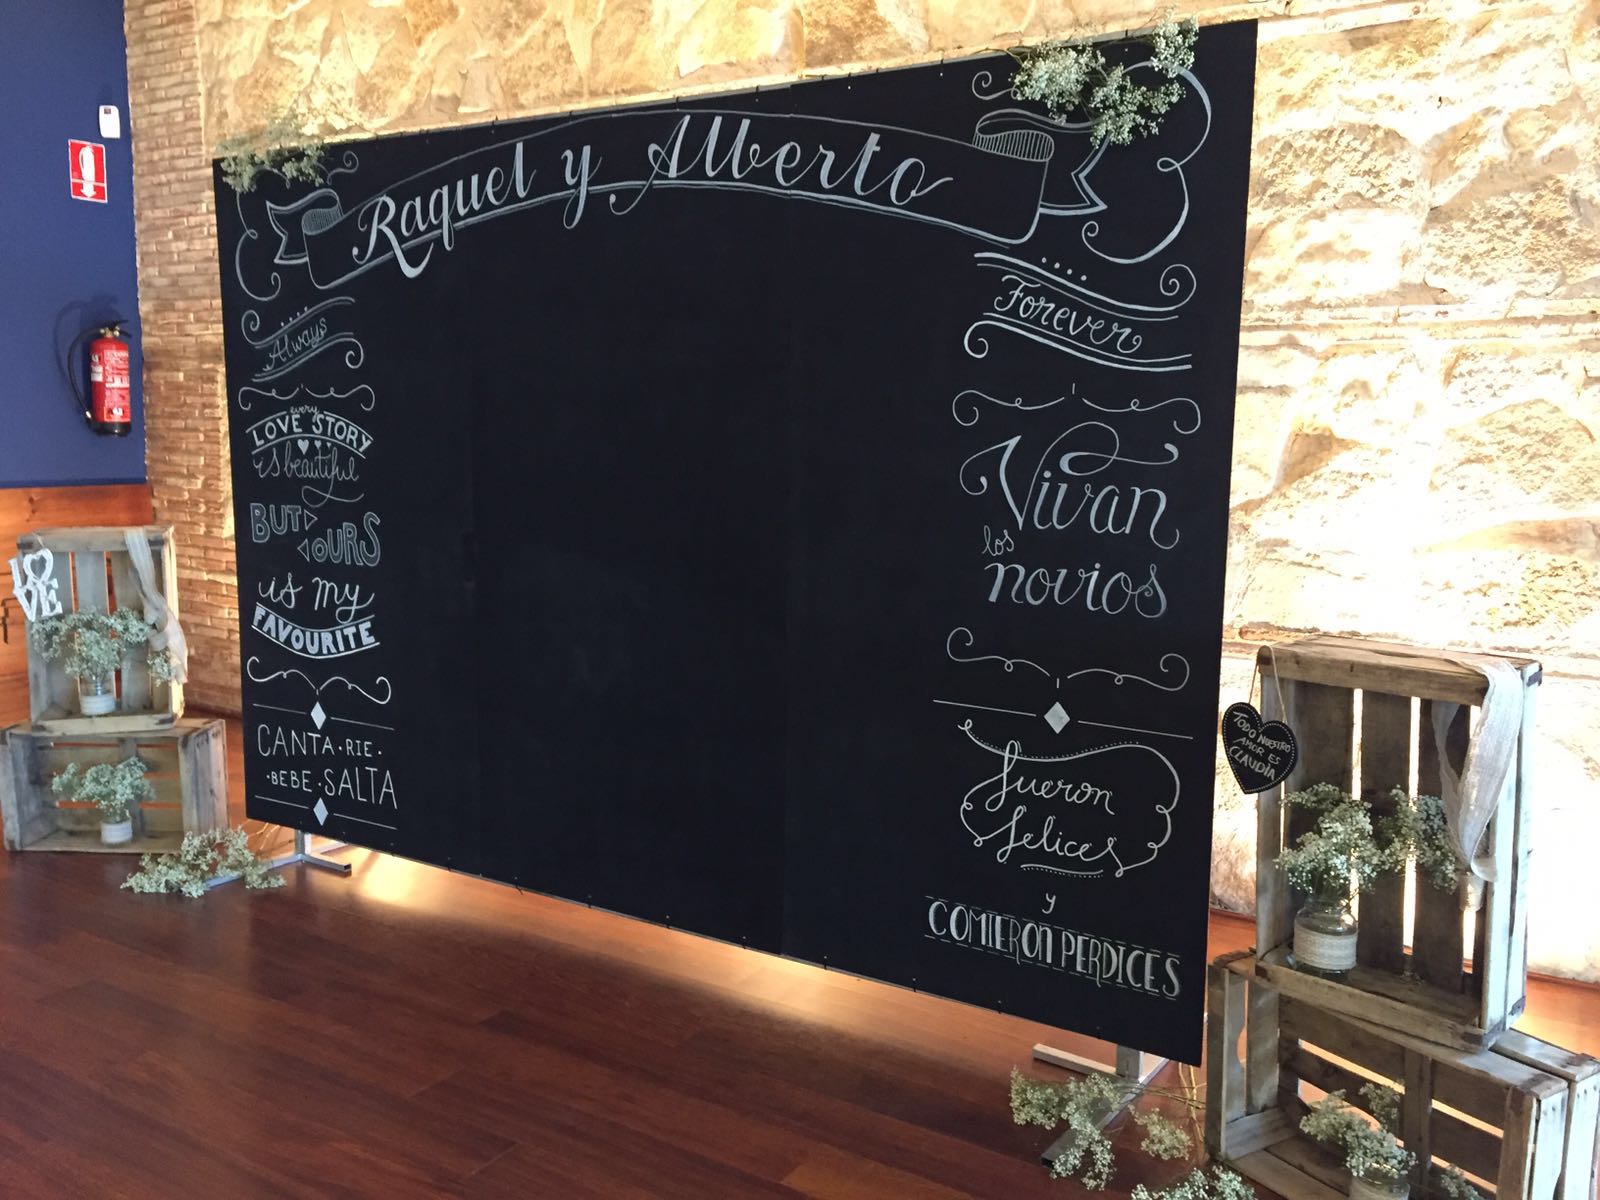 Raquel y Alberto
Always
every
LOVE STORY
is beautiful
BUT
OURS
is my
FAVOURITE
CANTA · RIE ·
· BEBE · SALTA
Forever
Vivan
los
novios
fueron
felices
y
COMIERON PERDICES
LOVE
TODO NUESTRO
AMOR ES
CLAUDIA